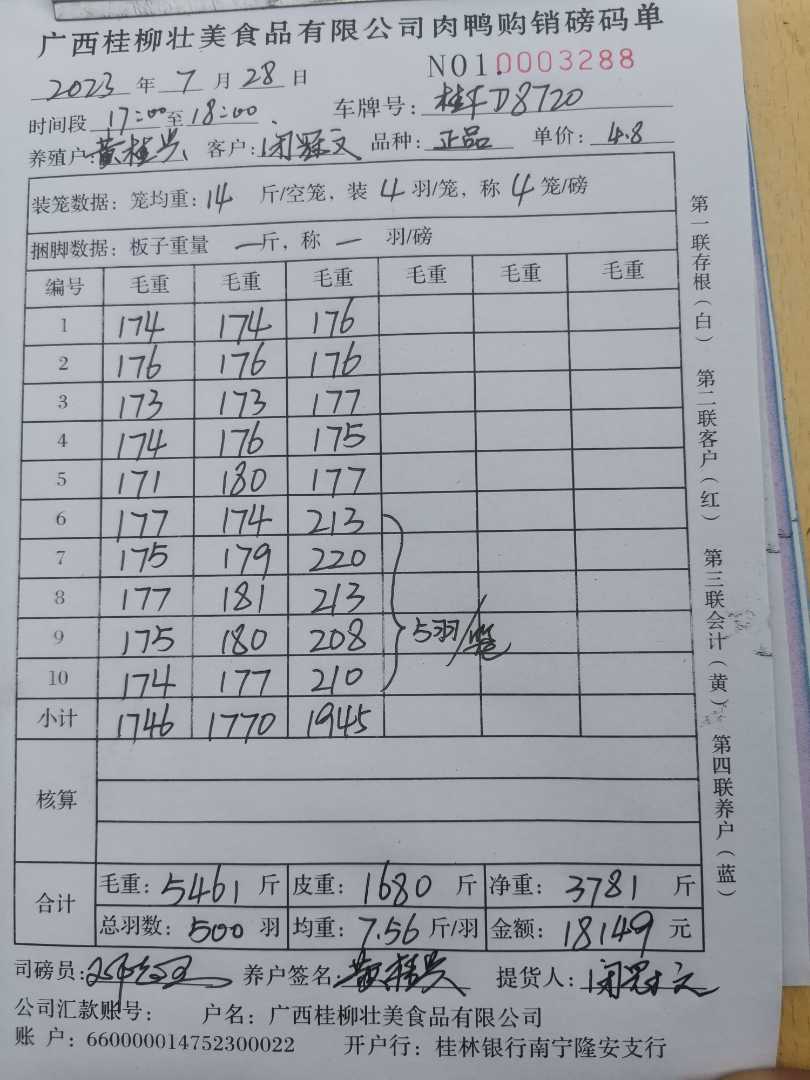 广西桂柳壮美食品有限公司肉鸭购销磅码单
2023 年 7 月 28 日 NO1.0003288
时间段 17:00 至 18:00 . 车牌号: 桂FD8720
养殖户: 黄桂兴 客户: 闭冠文 品种: 正品 单价: 4.8
装笼数据: 笼均重: 14 斤/空笼, 装 4 羽/笼, 称 4 笼/磅
捆脚数据: 板子重量 一 斤, 称 一 羽/磅
编号 毛重 毛重 毛重 毛重 毛重 毛重
1 174 174 176
2 176 176 176
3 173 173 177
4 174 176 175
5 171 180 177
6 177 174 213
7 175 179 220
8 177 181 213
9 175 180 208 5羽/笼
10 174 177 210
小计 1746 1770 1945
核算
合计 毛重: 5461 斤 皮重: 1680 斤 净重: 3781 斤
总羽数: 500 羽 均重: 7.56 斤/羽 金额: 18149 元
司磅员: 养户签名: 黄桂兴 提货人: 闭冠文
公司汇款账号: 户名: 广西桂柳壮美食品有限公司
账 户: 660000014752300022 开户行: 桂林银行南宁隆安支行
第一联存根(白) 第二联客户(红) 第三联会计(黄) 第四联养户(蓝)